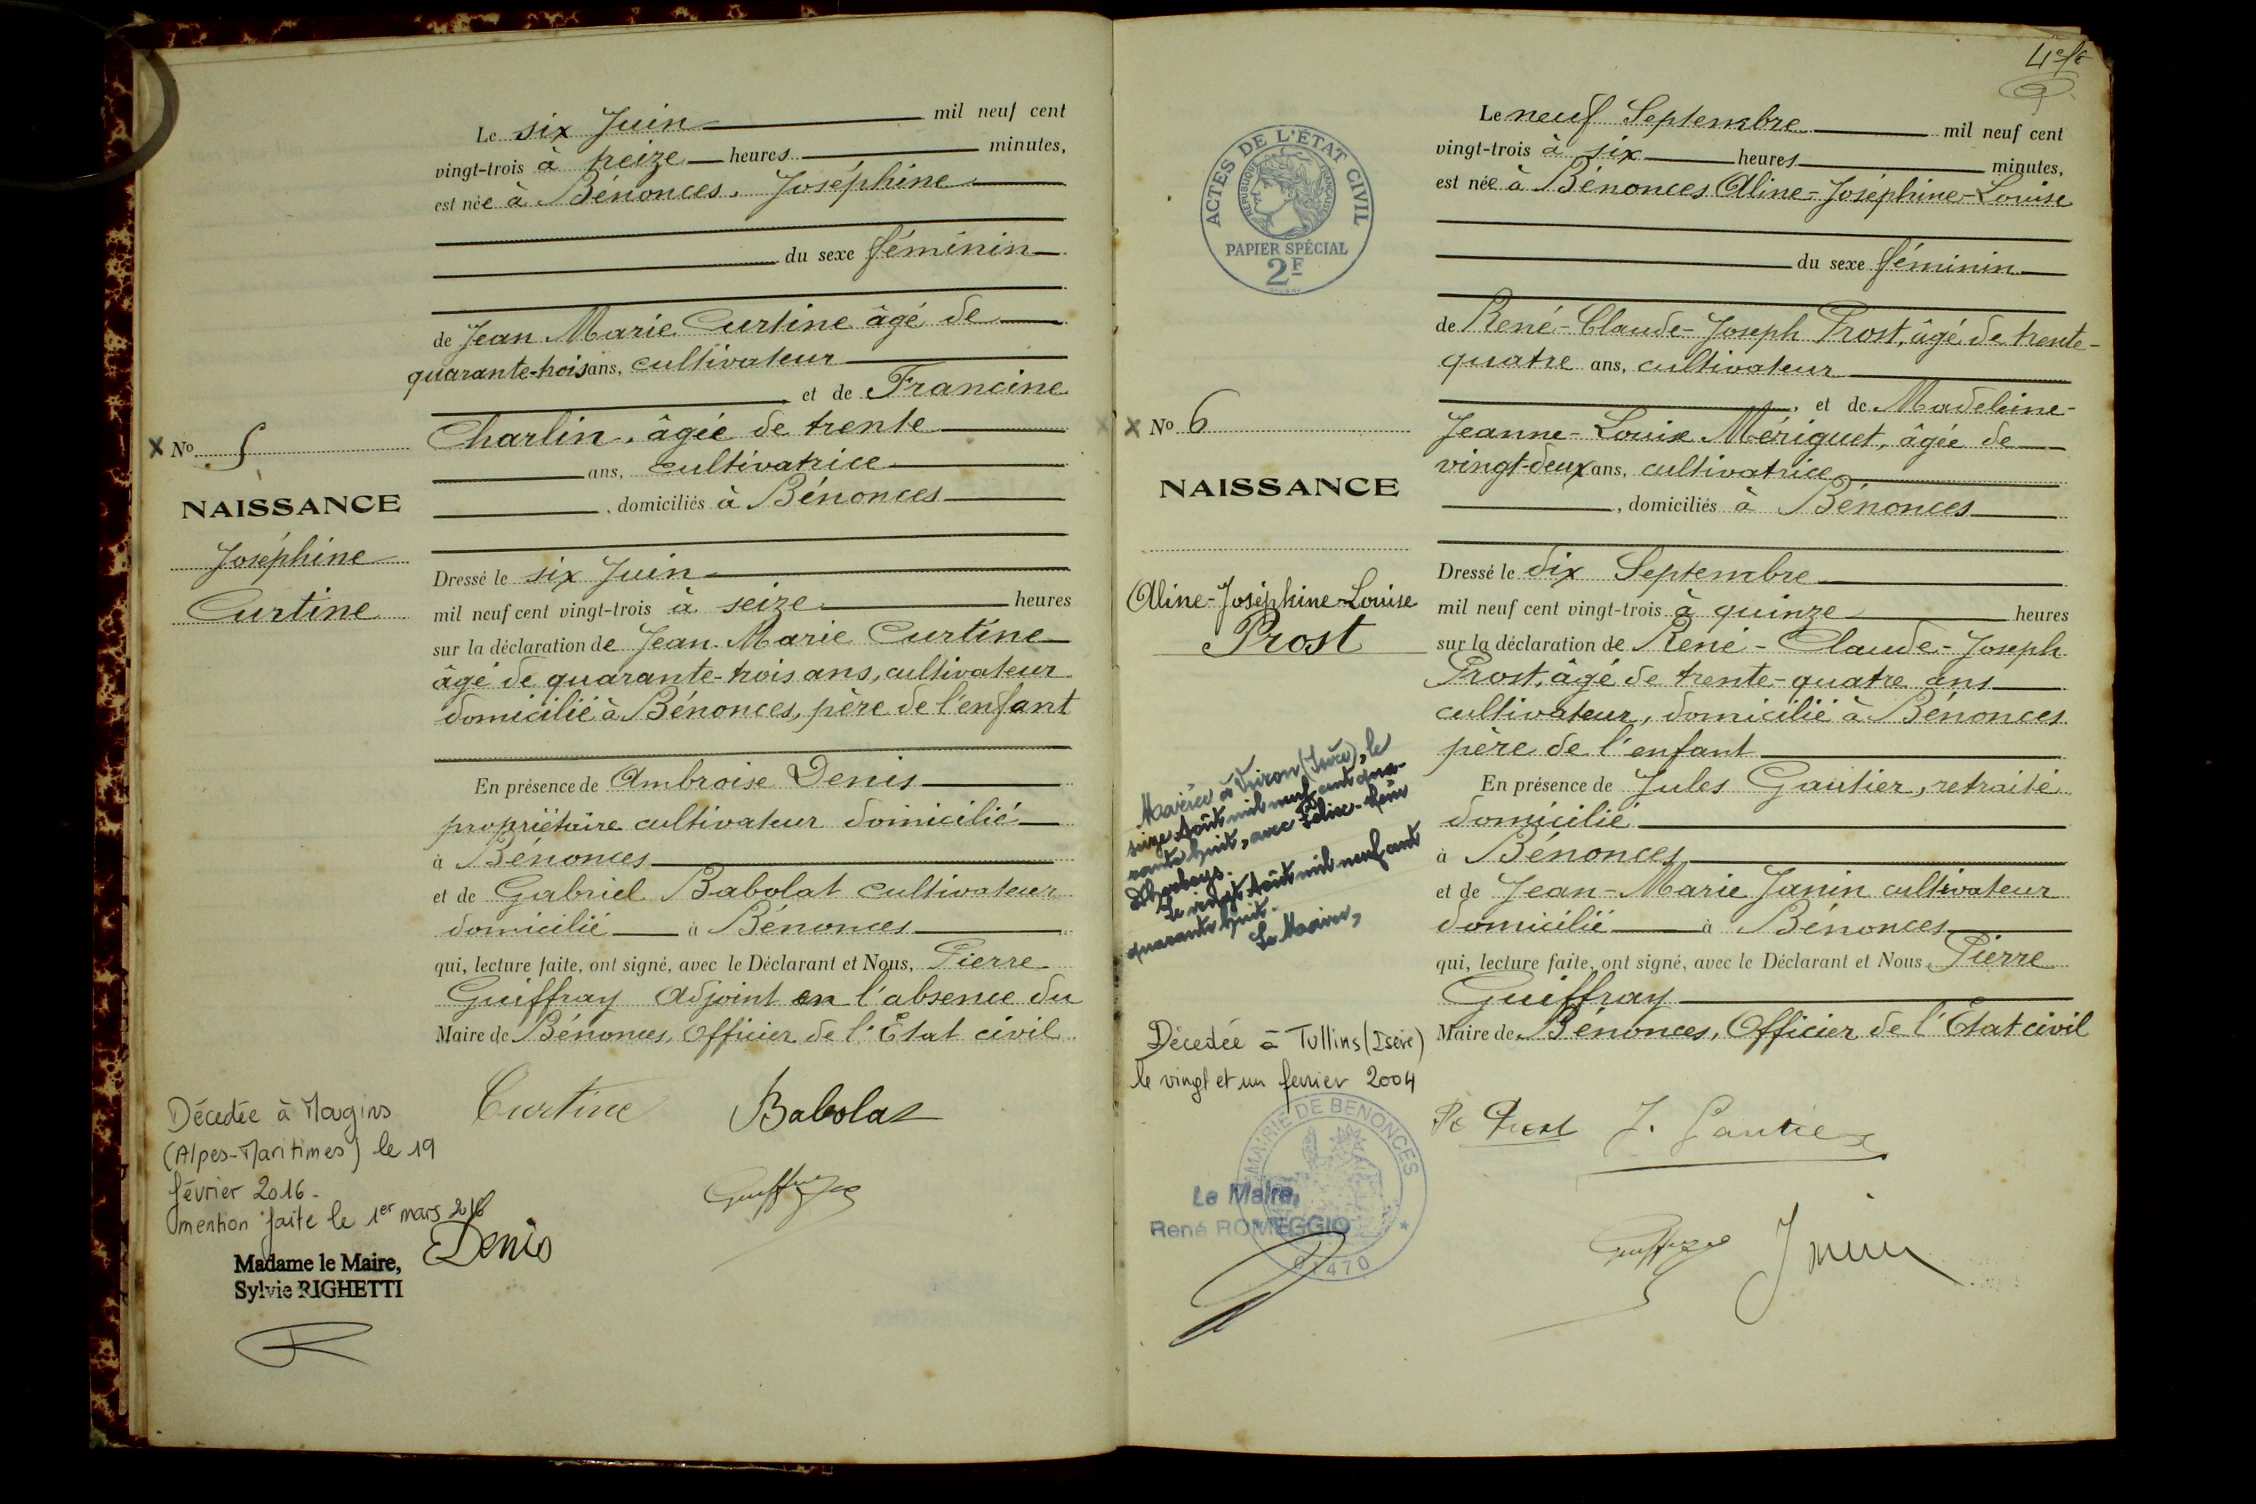 Le six Juin mil neuf cent
vingt-trois à treize heures minutes,
est née à Bénonces, Joséphine
du sexe féminin
de Jean Marie Curtine âgé de
quarante-trois ans, cultivateur
et de Francine
Charlin, âgée de trente
ans, cultivatrice
, domiciliés à Bénonces
Dressé le six Juin
mil neuf cent vingt-trois à seize heures
sur la déclaration de Jean Marie Curtine
âgé de quarante-trois ans, cultivateur
domicilié à Bénonces, père de l'enfant
En présence de Ambroise Denis
propriétaire cultivateur domicilié
à Bénonces
et de Gabriel Babolat cultivateur
domicilié à Bénonces
qui, lecture faite, ont signé, avec le Déclarant et Nous, Pierre
Guiffray adjoint en l'absence du
Maire de Bénonces, Officier de l'Etat civil
X No 5
NAISSANCE
Joséphine
Curtine
Curtine Babolat
Guiffray
Denis
Décedée à Mougins
(Alpes-Maritimes) le 19
février 2016.
mention faite le 1er mars 2016
Madame le Maire,
Sylvie RIGHETTI
4e
ACTES DE L'ÉTAT CIVIL
RÉPUBLIQUE FRANÇAISE
PAPIER SPÉCIAL
2F
Le neuf Septembre mil neuf cent
vingt-trois à six heures minutes,
est née à Bénonces Aline-Joséphine-Louise
du sexe féminin
de René-Claude-Joseph Prost, âgé de trente-
quatre ans, cultivateur
, et de Madeleine-
Jeanne-Louise Mériguet, âgée de
vingt-deux ans, cultivatrice
, domiciliés à Bénonces
Dressé le dix Septembre
mil neuf cent vingt-trois à quinze heures
sur la déclaration de René-Claude-Joseph
Prost, âgé de trente-quatre ans
cultivateur, domicilié à Bénonces
père de l'enfant
En présence de Jules Gautier, retraité
domicilié
à Bénonces
et de Jean-Marie Janin cultivateur
domicilié à Bénonces
qui, lecture faite, ont signé, avec le Déclarant et Nous, Pierre
Guiffray
Maire de Bénonces, Officier de l'Etat civil
X No 6
NAISSANCE
Aline-Joséphine-Louise
Prost
Mariée à (Isère), le
seize Août mil neuf cent qua-
rante huit, avec Félix
Le vingt Août mil neuf cent
quarante huit.
Le Maire,
Décedée à Tullins (Isère)
le vingt et un fevrier 2004
MAIRIE DE BENONCES
01470
Le Maire,
René ROMEGGIO
Prost J. Gautier
Guiffray Janin